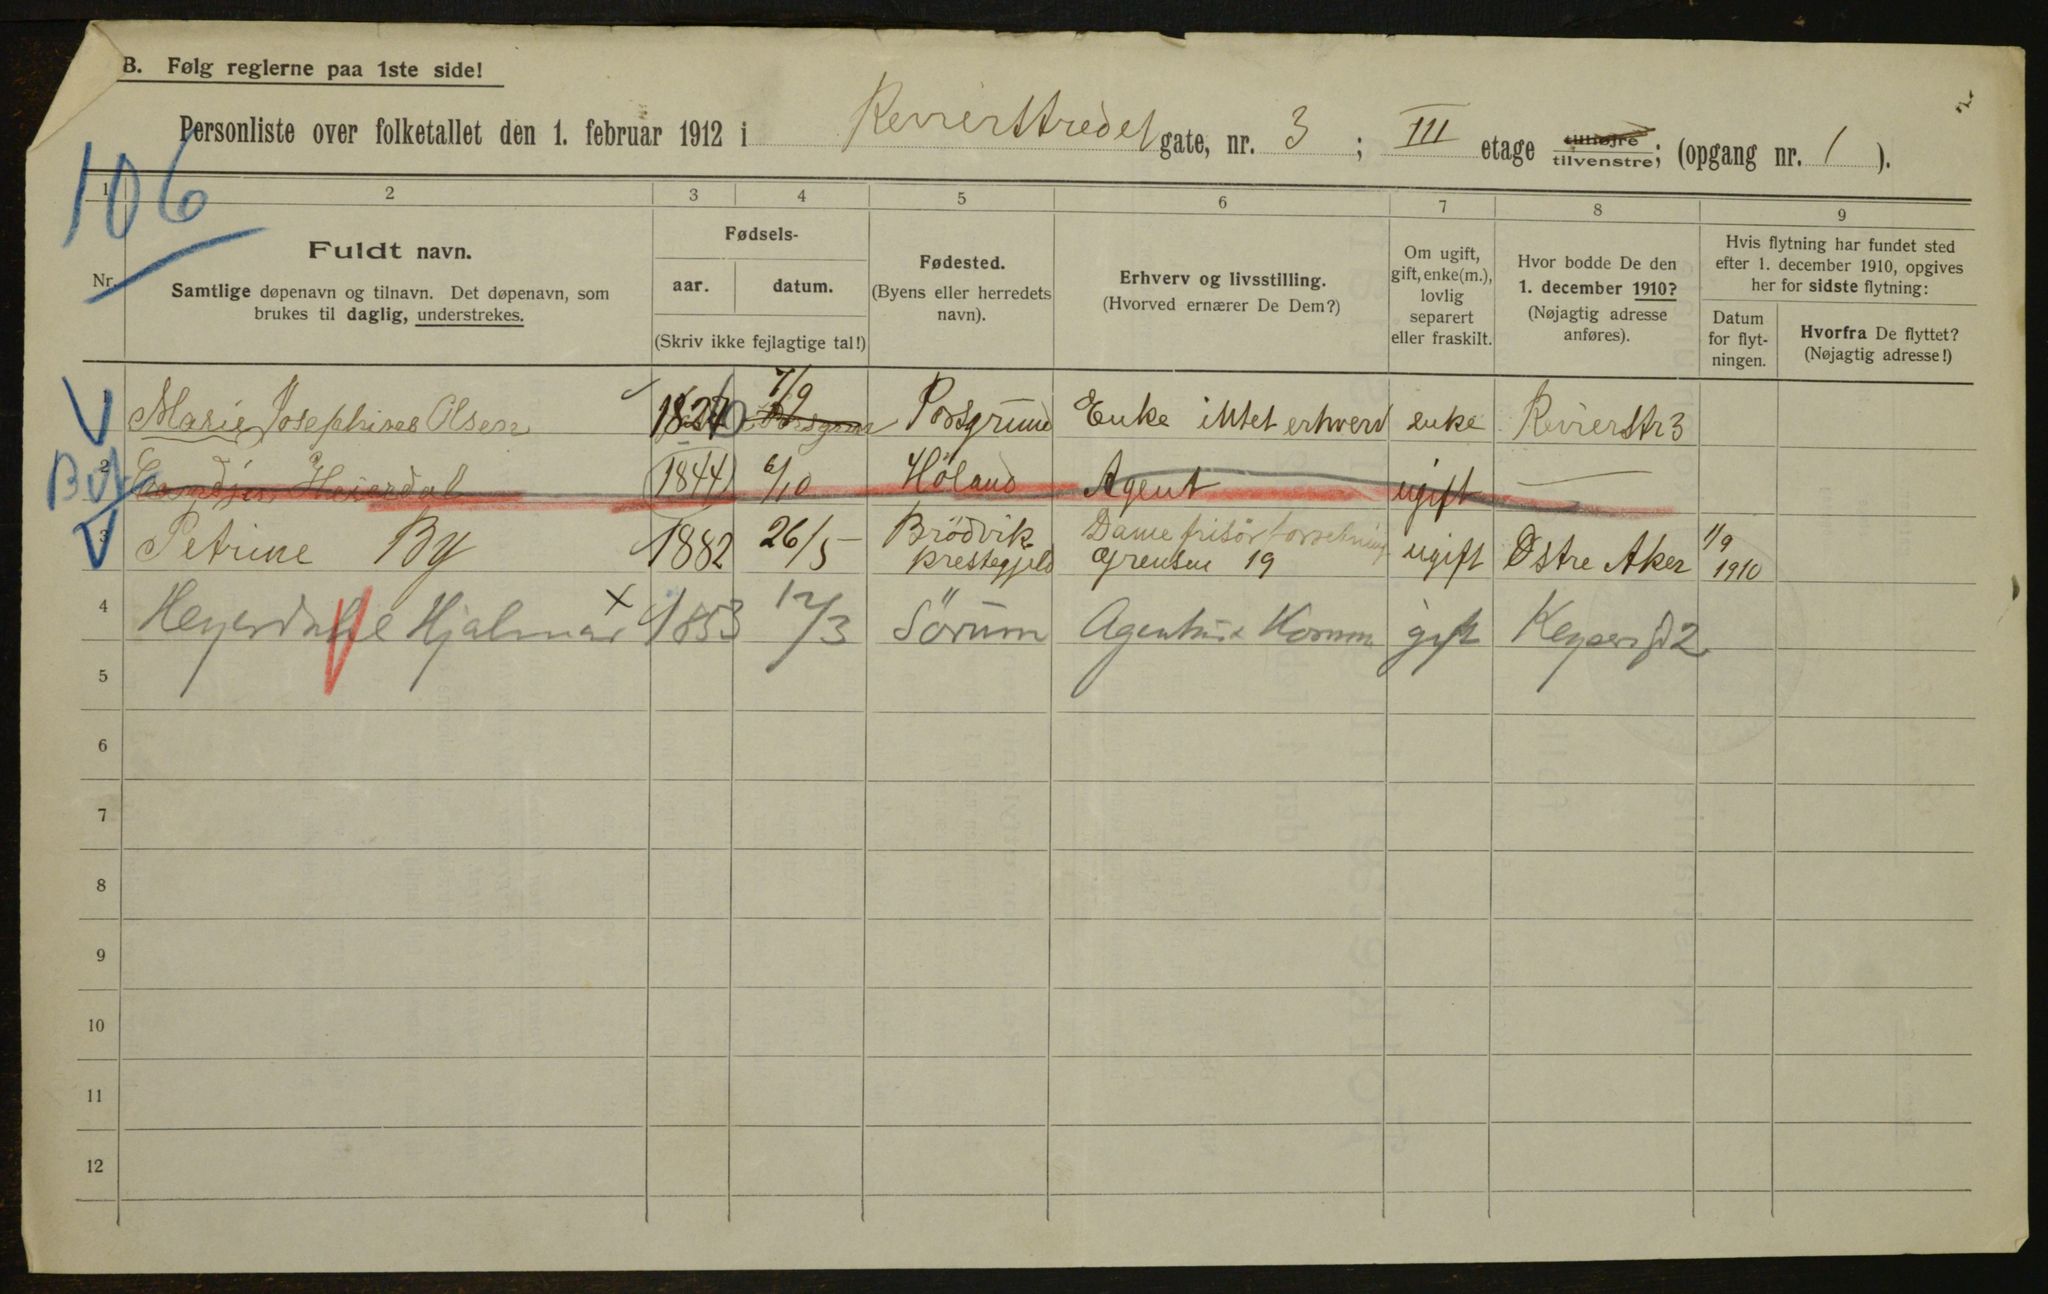 B. Følg reglerne paa 1ste side!
Personliste over folketallet den 1. februar 1912 i Revierstredet gate, nr. 3 ; III etage tilhøjre tilvenstre; (opgang nr. 1 ).
106
1 2 3 4 5 6 7 8 9
Nr.
Fuldt navn.
Samtlige døpenavn og tilnavn. Det døpenavn, som
brukes til daglig, understrekes.
Fødsels-
aar. datum.
(Skriv ikke fejlagtige tal!)
Fødested.
(Byens eller herredets
navn).
Erhverv og livsstilling.
(Hvorved ernærer De Dem?)
Om ugift,
gift, enke(m.),
lovlig
separert
eller fraskilt.
Hvor bodde De den
1. december 1910?
(Nøjagtig adresse
anføres).
Hvis flytning har fundet sted
efter 1. december 1910, opgives
her for sidste flytning:
Datum
for flyt-
ningen.
Hvorfra De flyttet?
(Nøjagtig adresse!)
Marie Josephines Olsen 7/9 Porsgrund Enke intet erhverv enke Revierstr 3
2 Heierdal 1844 6/10 Höland Agent ugift —
3 Petrine By 1882 26/5 Brödvik prestegjeld Dame frisör forretning Grensen 19 ugift Østre Aker 1/9 1910
4 Heyerdahl Hjalmar x 1853 12/3 Sörum Agentur & Komm gift Keysers gd 2
5
6
7
8
9
10
11
12